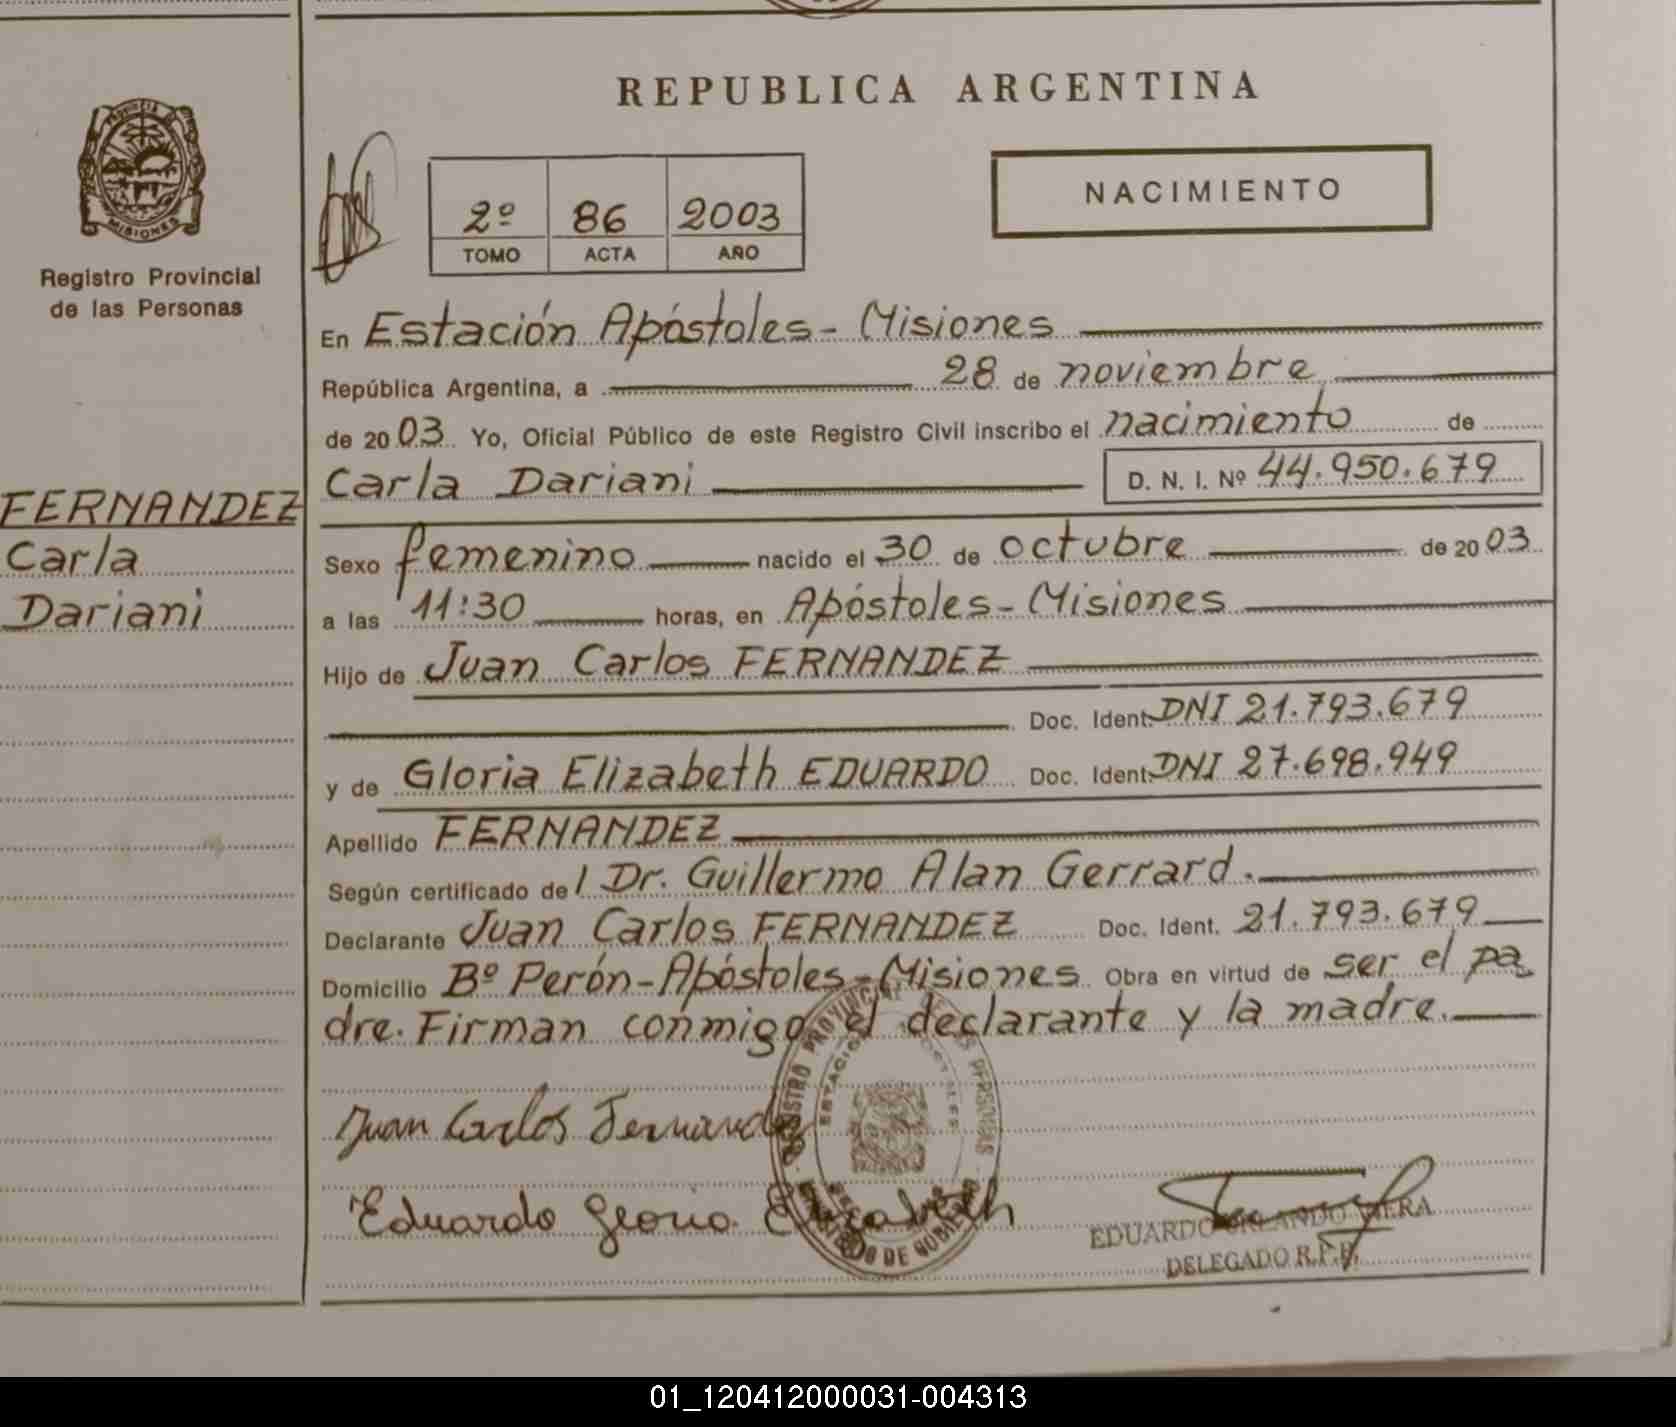 REPUBLICA ARGENTINA
PROVINCIA DE
MISIONES
Registro Provincial
de las Personas
FERNANDEZ
Carla
Dariani
2º 86 2003
TOMO ACTA AÑO
NACIMIENTO
En Estación Apóstoles - Misiones
República Argentina, a 28 de noviembre
de 2003 Yo, Oficial Público de este Registro Civil inscribo el nacimiento de
Carla Dariani D. N. I. Nº 44.950.679
Sexo femenino nacido el 30 de octubre de 2003
a las 11:30 horas, en Apóstoles - Misiones
Hijo de Juan Carlos FERNANDEZ
Doc. Ident. DNI 21.793.679
y de Gloria Elizabeth EDUARDO Doc. Ident. DNI 27.698.949
Apellido FERNANDEZ
Según certificado del Dr. Guillermo Alan Gerrard.
Declarante Juan Carlos FERNANDEZ Doc. Ident. 21.793.679
Domicilio Bº Perón - Apóstoles - Misiones Obra en virtud de ser el pa
dre. Firman conmigo el declarante y la madre.
REGISTRO PROVINCIAL DE LAS PERSONAS
Juan Carlos Fernandez
Eduardo Gloria Elizabeth
EDUARDO ORLANDO VIERA
DELEGADO R.P.P.
01_120412000031-004313